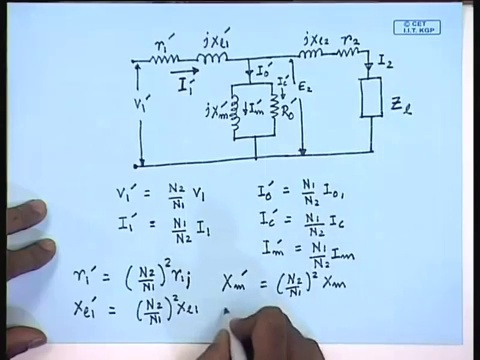 © CET
I.I.T. KGP
r₁′ jxℓ₁′ jxℓ₂ r₂
I₁′ I₀′ I₂
V₁′ jXm′ Im′ Ic′ R₀′ E₂ Zℓ
V₁′ = N₂/N₁ V₁ I₀′ = N₁/N₂ I₀,
I₁′ = N₁/N₂ I₁ Ic′ = N₁/N₂ Ic
Im′ = N₁/N₂ Im
r₁′ = (N₂/N₁)² r₁; Xm′ = (N₂/N₁)² Xm
Xℓ₁′ = (N₂/N₁)² Xℓ₁